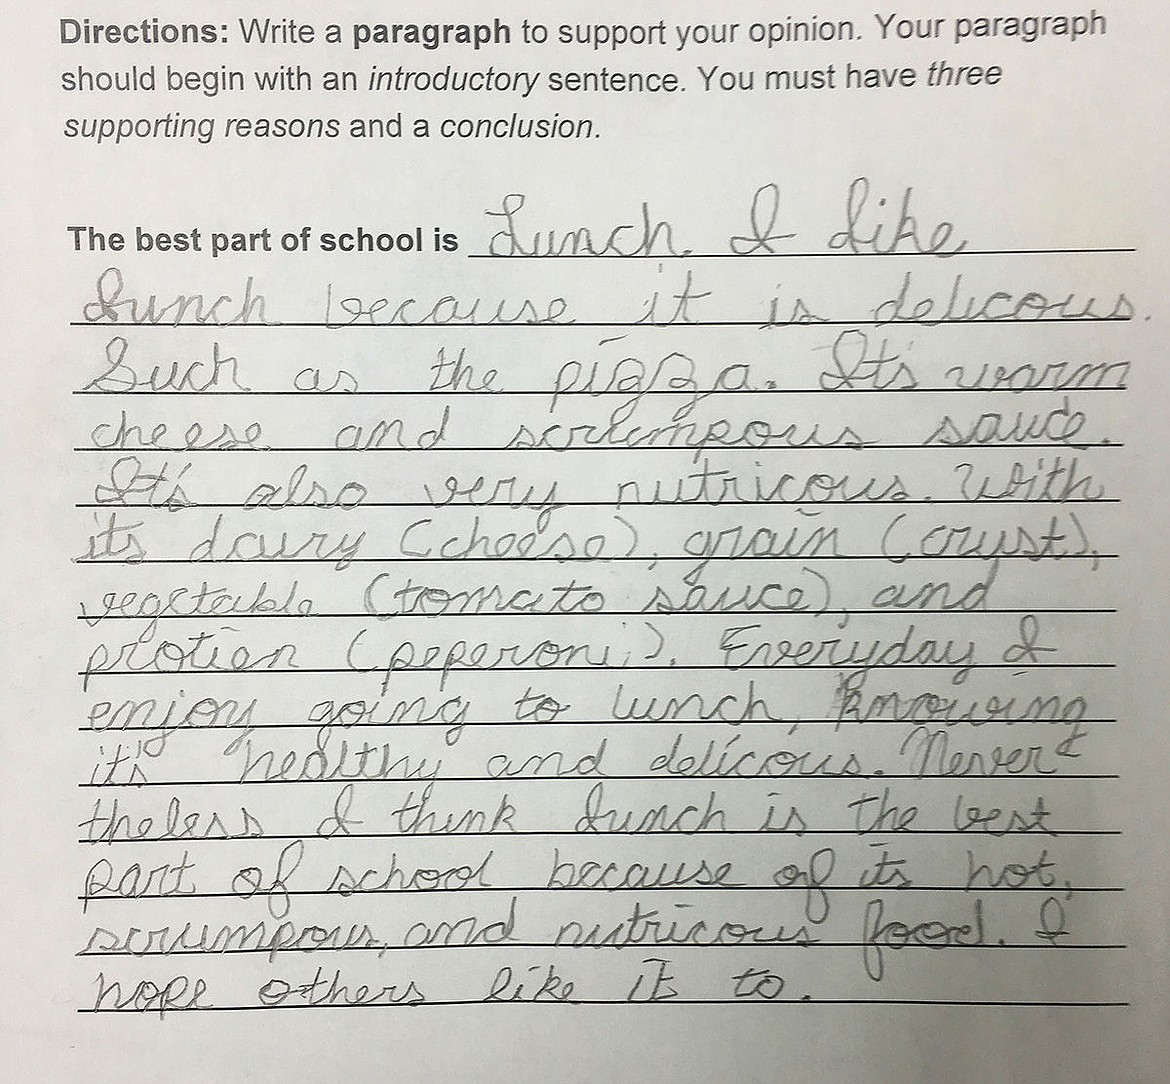 Directions: Write a paragraph to support your opinion. Your paragraph
should begin with an introductory sentence. You must have three
supporting reasons and a conclusion.
The best part of school is Lunch. I like
lunch because it is delicous.
Such as the pizza. It's warm
cheese and scrumpous sauce.
It's also very nutricous. With
its dairy (cheese), grain (crust),
vegetable (tomato sauce), and
protien (peperoni). Everyday I
enjoy going to lunch, knowing
it's healthy and delicous. Never
theless I think lunch is the best
part of school because of its hot,
scrumpous, and nutricous food. I
hope others like it to.